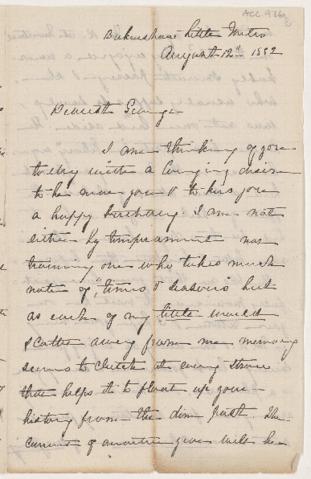 ACC. 936
August 12th 1882
Dearest George
I am thinking of you
to day with a longing desire
to be near you & to kiss you
a happy birthday. I am not
either by temperament nor
training one who takes much
note of "times & seasons" but
as each of my little world
scatter away from me memory
seems to clutch at every thing
that helps it to float up your
history from the dim past. The
current of another year will be